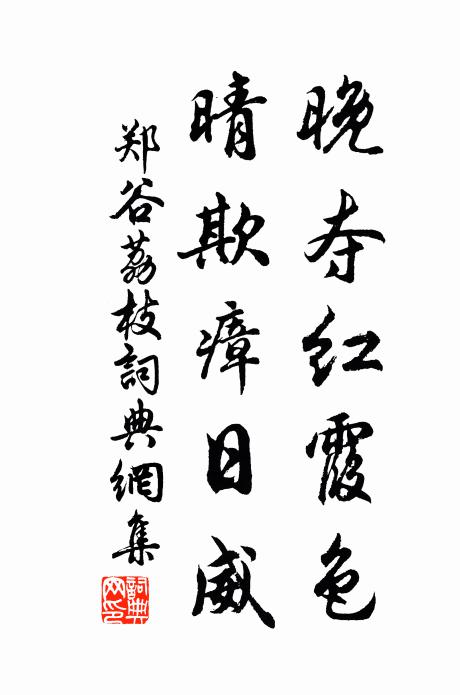 晚夺红霞色
晴欺瘴日威
郑谷荔枝詞典網集
詞典网印